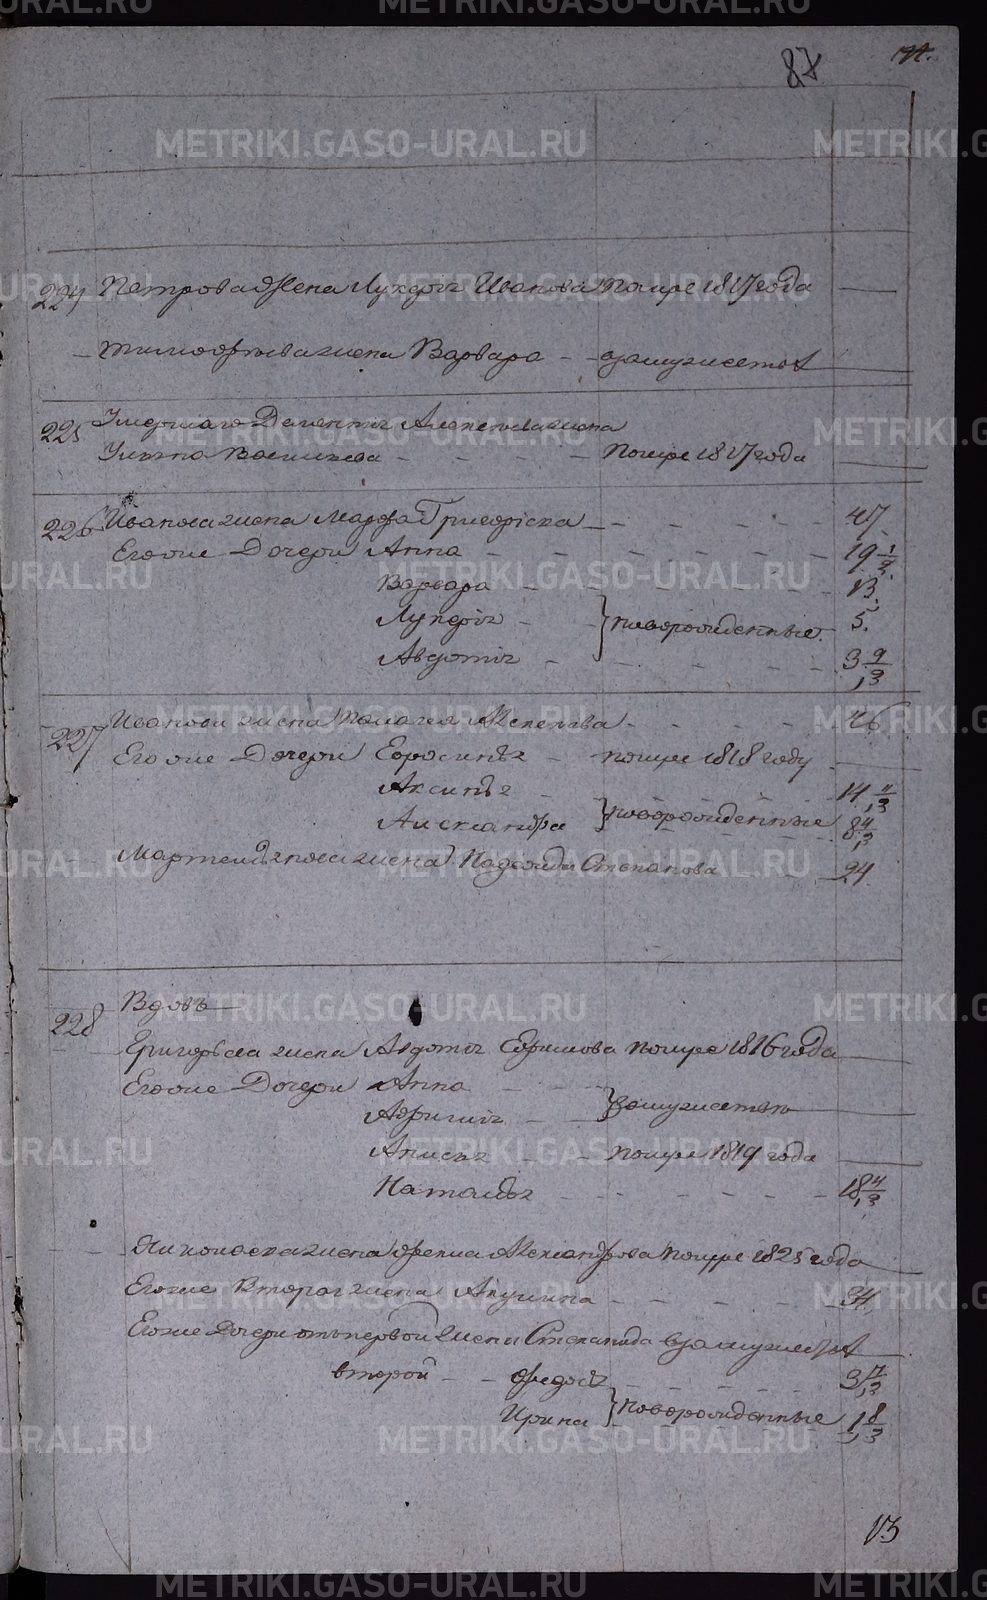 87
224 Петрова Жена Лукерья Иванова Помре 1817 года
Тимофѣева жена Варвара - взамужестве
225 Умершаго Дементия Алексеева жена
Ульяна Васильева - - - Помре 1817 года
226 Иванова жена Марфа Григорьева - - - - 47.
Его же Дочери Анна - - - - 19 1/2
Варвара - - - - 13.
Лукерья - } новорожденные 5.
Авдотья - - - - 3 9/12
227 Иванова жена Палагея Алексеева - - - 46
Его же Дочери Ефросинья - помре 1818 году
Аксинья - - - 14 11/12
Александра } новорожденные 8 4/12
жена Надежда Степанова - - 24.
228 Вдовъ
Григорьева жена Авдотья Ефимова помре 1816 года
Его же Дочери Анна
Афимья - } взамужестве
Анисья - - помре 1819 года
Наталья - - - - 18 4/12
жена Александрова помре 1825 года
Его же Вторая жена Акулина - - - 34.
Его же Дочери отъ первой жены Степанида взамужестве
второй - - Федосья - - - 3 7/12
Ирина } новорожденные 1 8/12
13